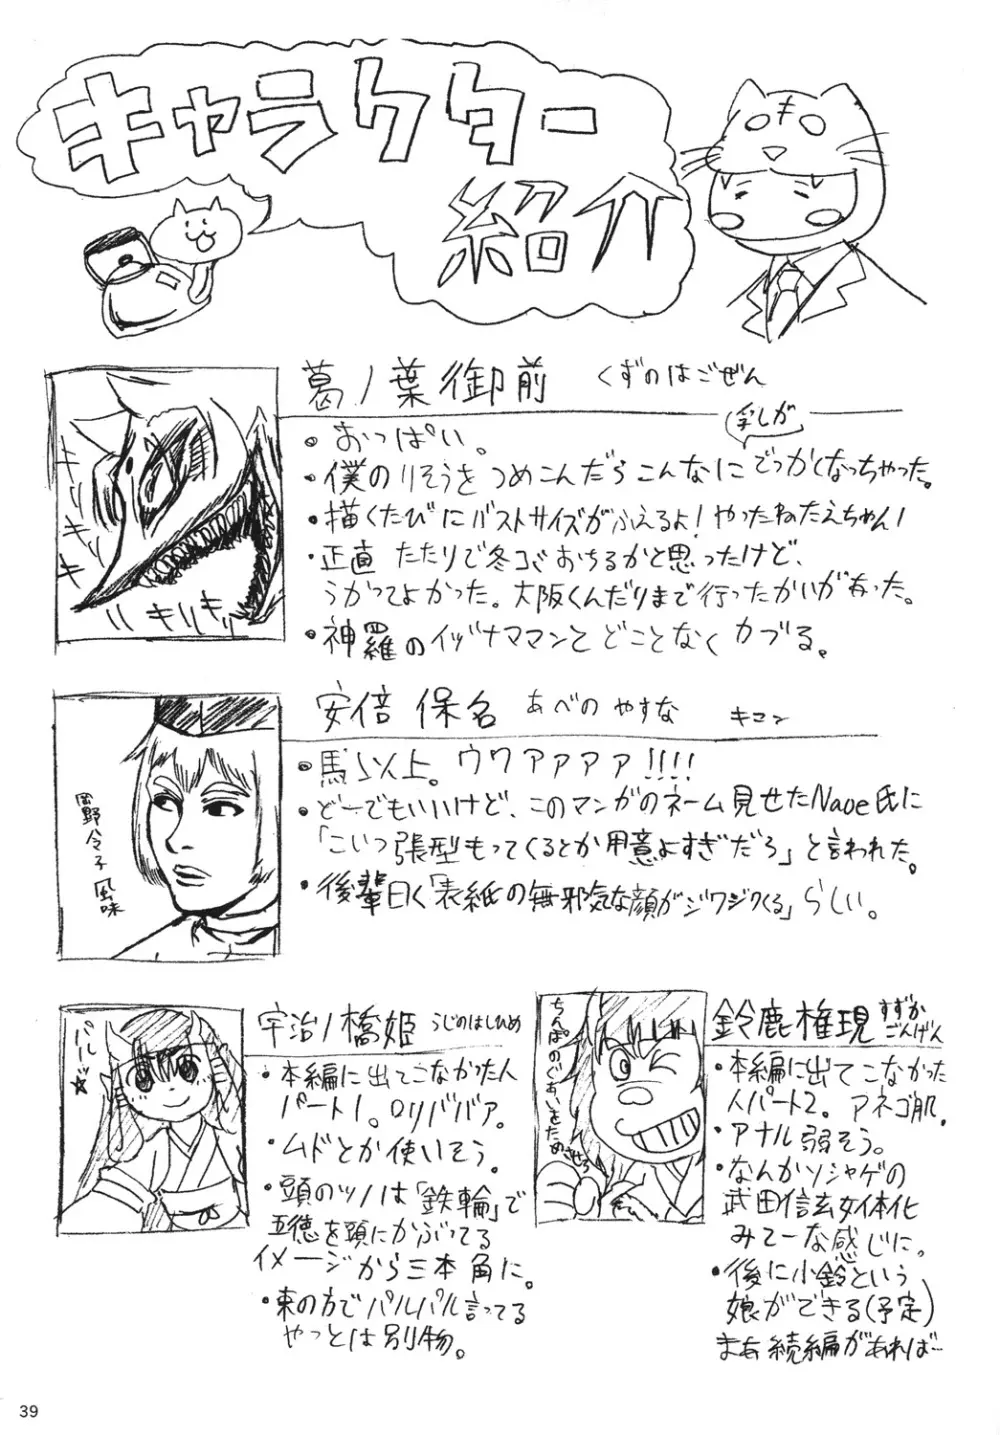 キャラクター
紹介
葛ノ葉御前 くずのはごぜん
・おっぱい。
乳しが
・僕のりそうをつめこんだらこんなにでっかくなっちゃった。
・描くたびにバストサイズがふえるよ!やったねたえちゃん!
・正直 たたりで冬コミおちるかと思ったけど、
うかってよかった。大阪くんだりまで行ったかいがあった。
・神羅のイヅナママンとどことなくカブる。
キィ
キィ
キィ
ギリ キリキリ
安倍 保名 あべの やすな キコン
・馬い以上。ウワァァァァ!!!!
・どーでもいいけど、このマンガのネーム見せたNaoe氏に
「こいつ張型もってくるとか用意よすぎだろ」と言われた。
・後輩曰く「表紙の無邪気な顔がジワジワくる」らしい。
岡野令子風味
宇治ノ橋姫 うじのはしひめ
・本編に出てこなかった人
パート1。ロリババア。
・ムドとか使いそう。
・頭のツノは「鉄輪」で
五徳を頭にかぶってる
イメージから三本角に。
・東の方でパルパル言ってる
やつとは別物。
パルッ☆
鈴鹿権現 すずか
ごんげん
・本編に出てこなかった
人パート2。アネゴ肌。
・アナル弱そう。
・なんかソシャゲの
武田信玄女体化
みてーな感じに。
・後に小鈴という
娘ができる(予定)
まあ続編があれば…
ちんぽのぐあいをためさせろ
39